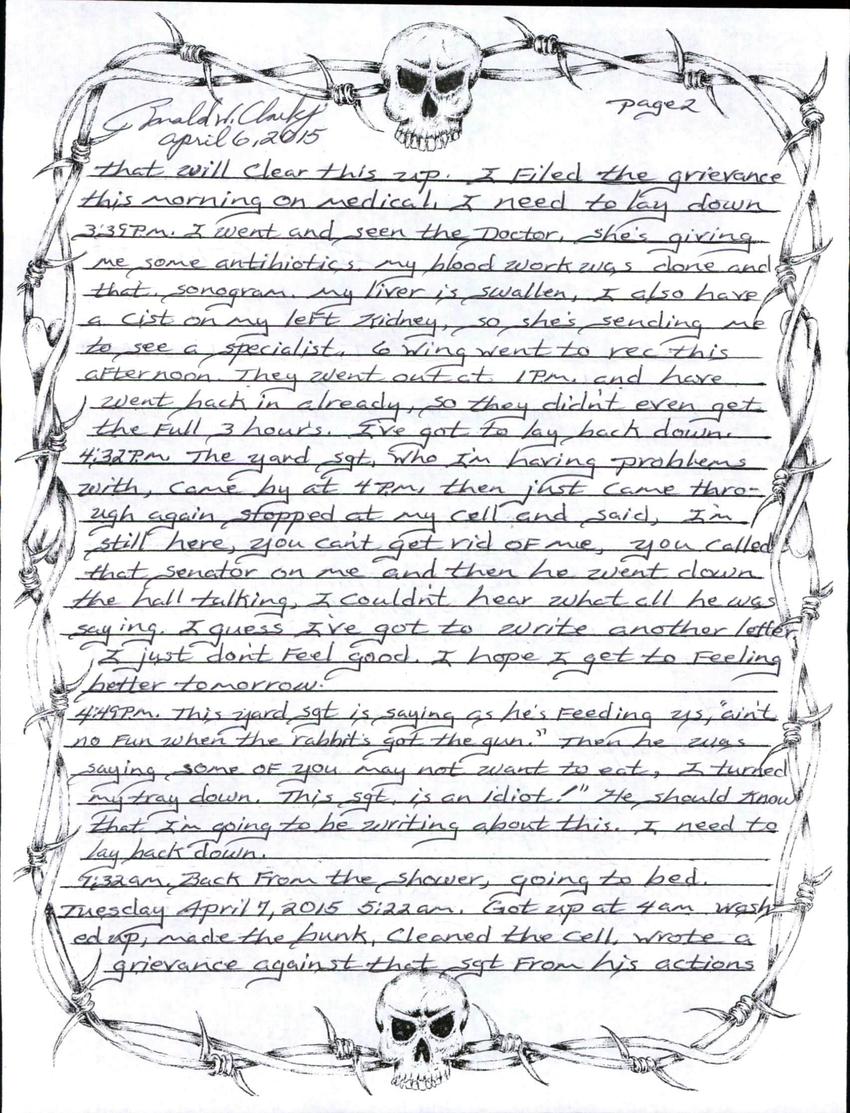 Ronald W. Clark Jr
page 2
April 6, 2015
that will Clear this up. I Filed the grievance
this morning on medical. I need to lay down
3:39P.m. I went and seen the Doctor, she's giving
me some antibiotics. my blood work was done and
that sonogram. my liver is swallen, I also have
a Cist on my left Kidney, so she's sending me
to see a specialist. G wing went to rec this
aFternoon. They went out at 1P.m. and have
went back in already, so they didn't even get
the Full 3 hours. I've got to lay back down.
4:32P.m. The yard sgt. who I'm having problems
with, came by at 4P.m. then just came thro-
ugh again stopped at my cell and said, I'm
still here, you can't get rid OF me, you called
that senator on me and then he went down
the hall talking, I couldn't hear what all he was
saying. I guess I've got to write another letter.
I just don't Feel good. I hope I get to Feeling
better tomorrow.
4:49P.m. This yard sgt is saying as he's Feeding us, "ain't
no Fun when the rabbit's got the gun." Then he was
saying some OF you may not want to eat, I turned
my tray down. This sgt. is an idiot!" He should Know
that I'm going to be writing about this. I need to
lay back down.
9:32am. Back From the shower, going to bed.
Tuesday April 7, 2015 5:22am. Got up at 4am wash-
ed up, made the bunk, Cleaned the Cell, wrote a
grievance against that sgt From his actions